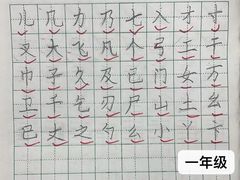 儿 几 力 乃 七 入 才 寸
叉 大 飞 凡 个 工 干
巾 子 久 及 已 门 女 万
卫 千 乞 刃 尸 山 土 幺
巳 丈 之 勺 么 小 丫 下
一年级